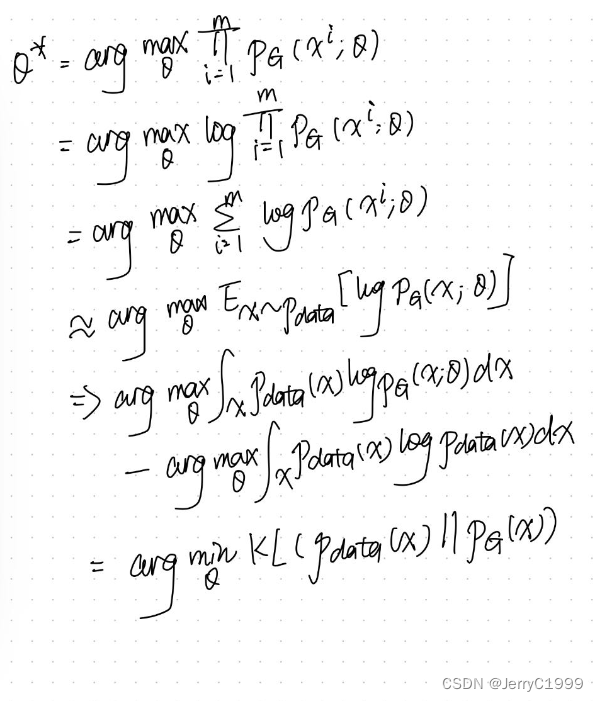 θ* = arg max_θ ∏_{i=1}^{m} P_G(x^i; θ)
= arg max_θ log ∏_{i=1}^{m} P_G(x^i; θ)
= arg max_θ ∑_{i=1}^{m} log P_G(x^i; θ)
≈ arg max_θ E_{x∼Pdata} [log P_G(x; θ)]
=> arg max_θ ∫_x Pdata(x) log P_G(x; θ) dx
− arg max_θ ∫_x Pdata(x) log Pdata(x) dx
= arg min_θ KL(Pdata(x) || P_G(x))
CSDN @JerryC1999